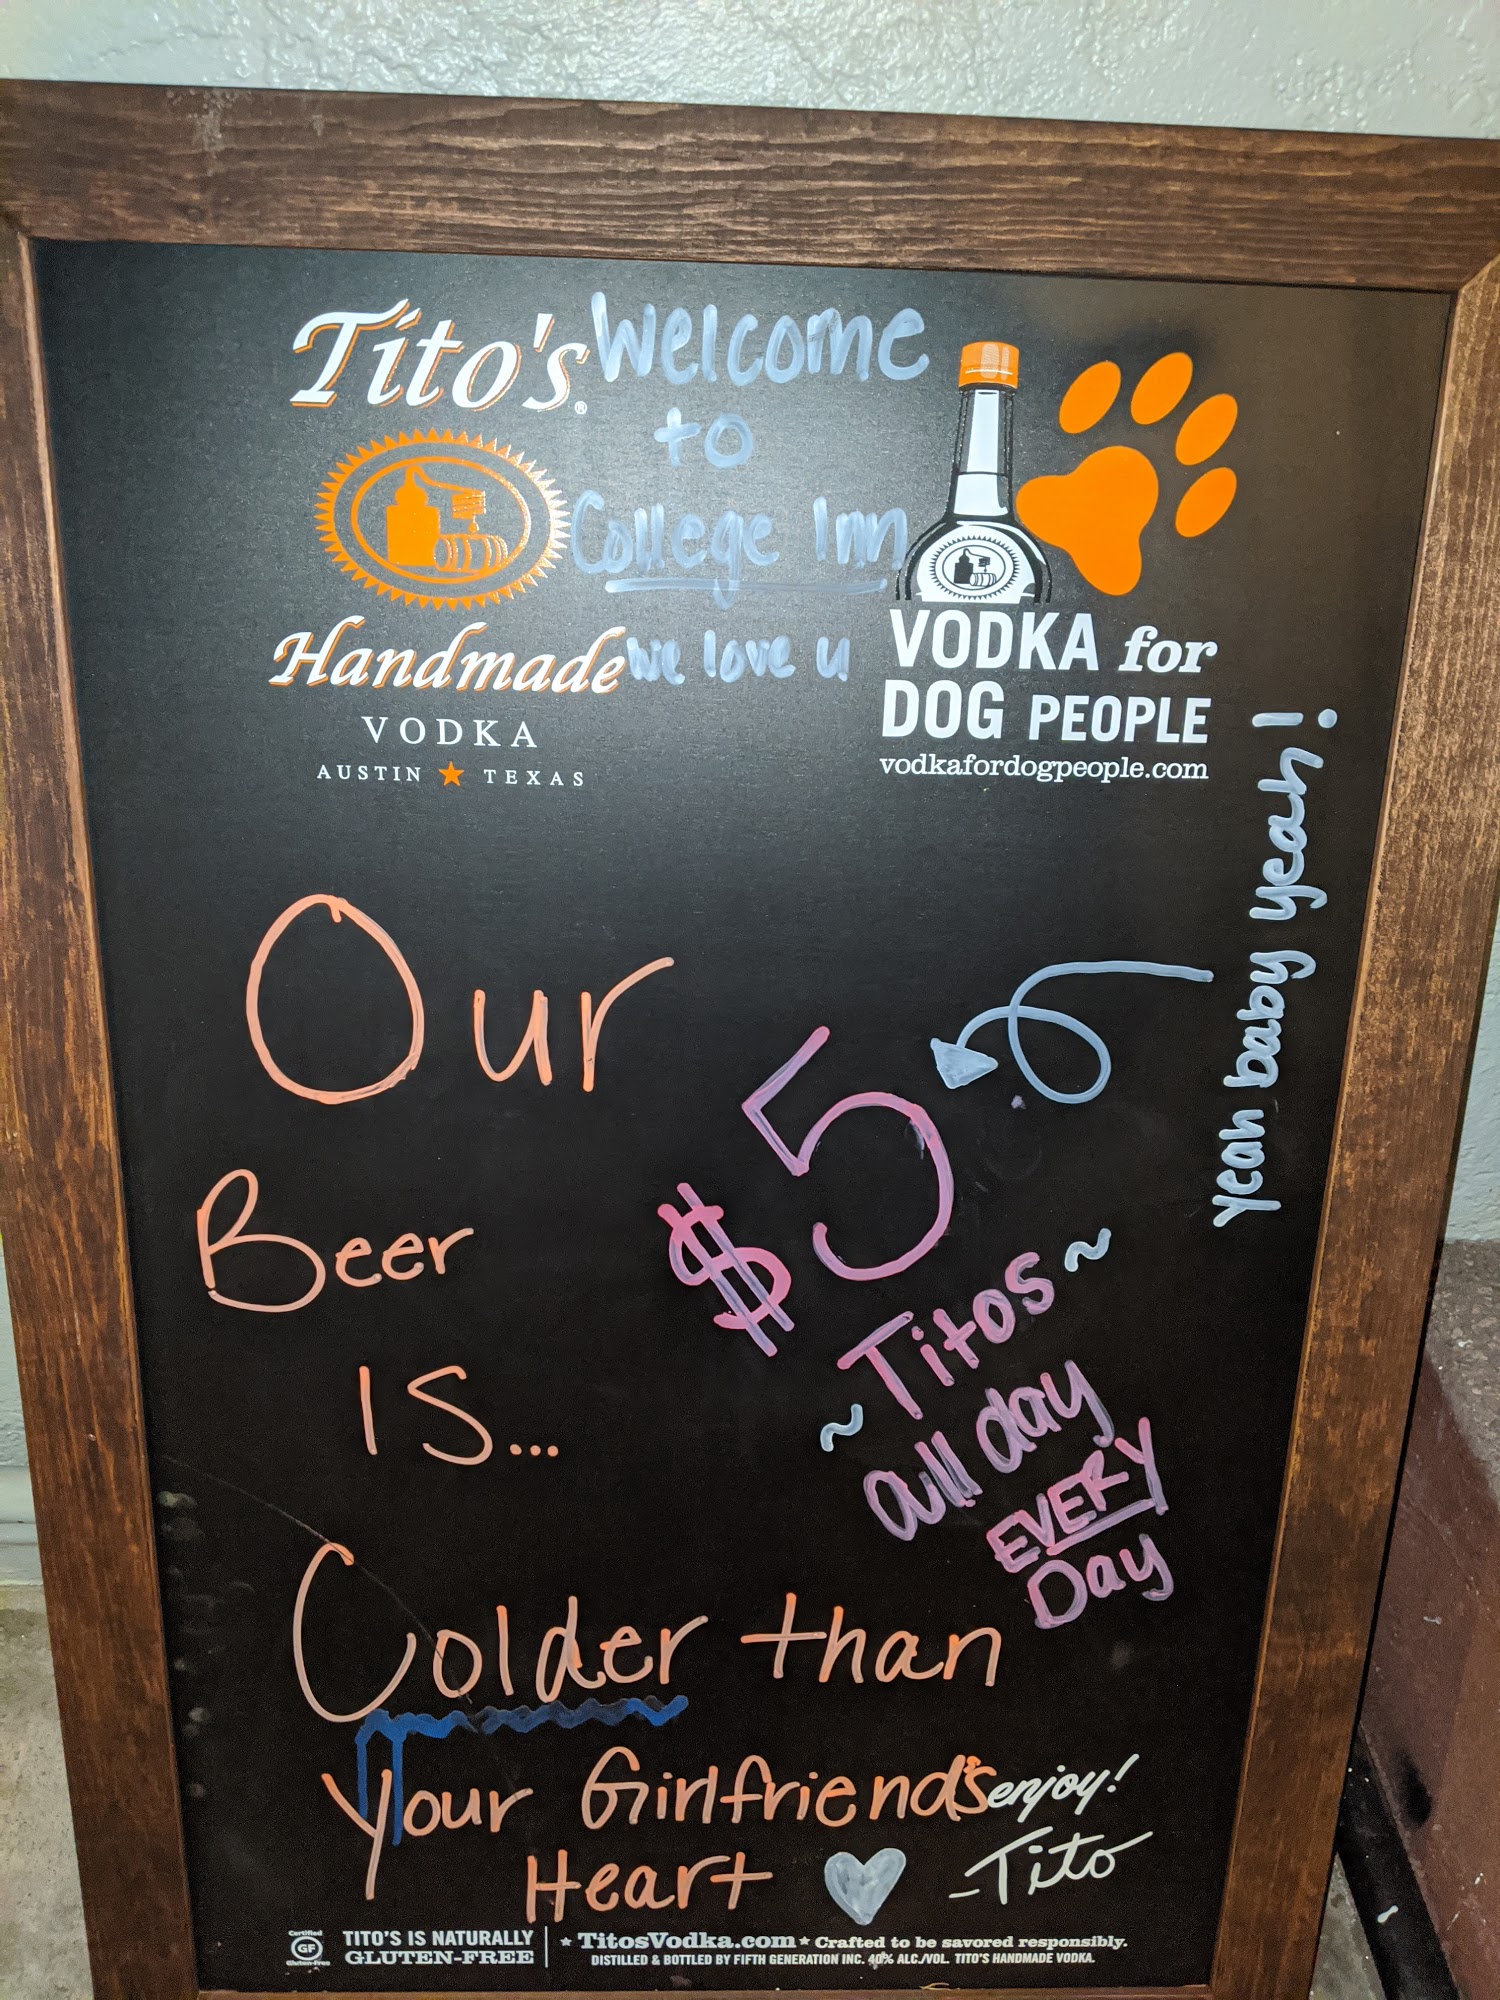 Tito's®
Handmade
VODKA
AUSTIN ★ TEXAS
Welcome
to
College Inn
We love u
VODKA for
DOG PEOPLE
vodkafordogpeople.com
yeah baby yeah!
Our
Beer
IS...
Colder than
Your Girlfriend's
Heart
$5
~Titos~
all day
EVERY
Day
enjoy!
-Tito
Certified
GF
Gluten-Free
TITO'S IS NATURALLY
GLUTEN-FREE
★ TitosVodka.com ★ Crafted to be savored responsibly.
DISTILLED & BOTTLED BY FIFTH GENERATION INC. 40% ALC./VOL. TITO'S HANDMADE VODKA.